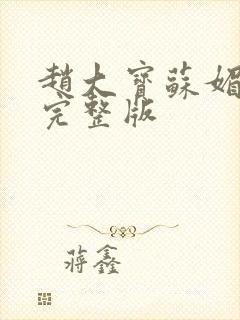 趙大寶蘇媚
完整版
蔣鑫